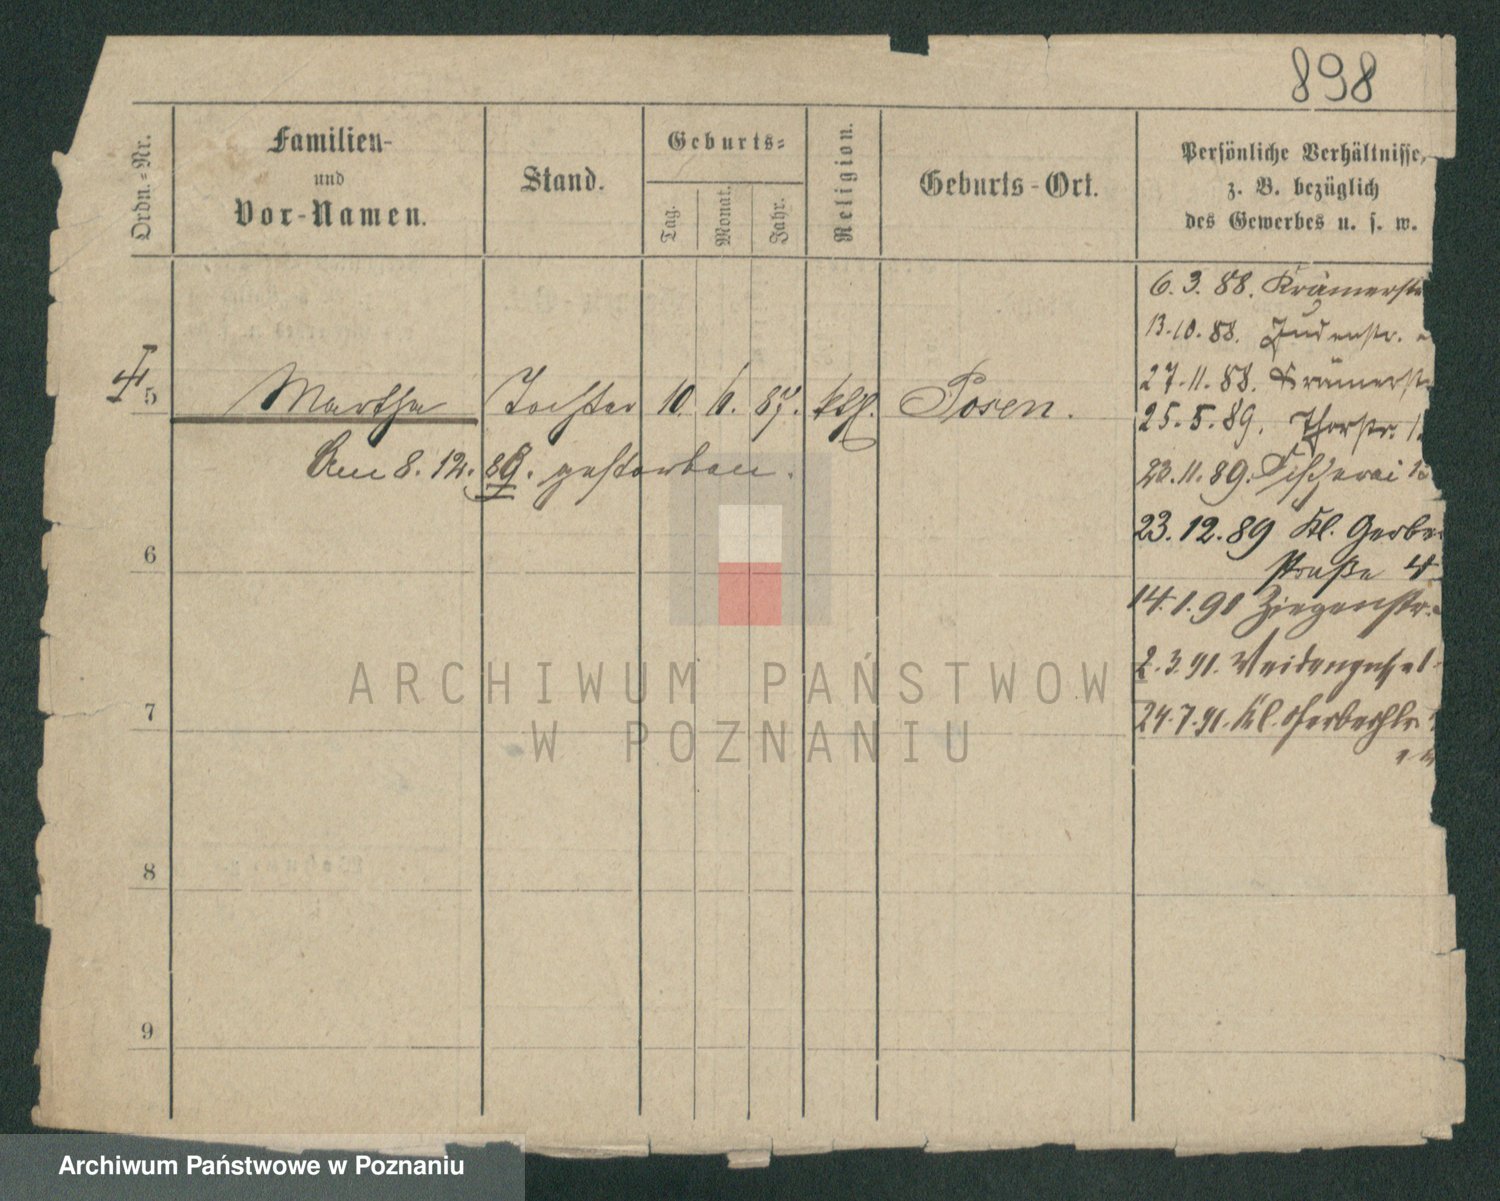 898
Ordn.-Nr.
Familien-
und
Vor-Namen.
Stand.
Geburts-
Tag.
Monat.
Jahr.
Religion.
Geburts-Ort.
Persönliche Verhältnisse,
z. B. bezüglich
des Gewerbes u. s. w.
5 Martha Tochter 10. 6. 87. kth. Posen.
Am 8. 12. 89. gestorben.
6
7
8
9
6. 3. 88. Krämerstr
13. 10. 88. Judenstr.
27. 11. 88. Krämerstr
25. 5. 89. Thorstr.
23. 11. 89. Fischerei
23. 12. 89 Kl. Gerbe
straße 4
14. 1. 90 Ziegenstr.
2. 3. 91.
24. 7. 91. Kl. Gerberstr.
ARCHIWUM PAŃSTWOWE
W POZNANIU
Archiwum Państwowe w Poznaniu